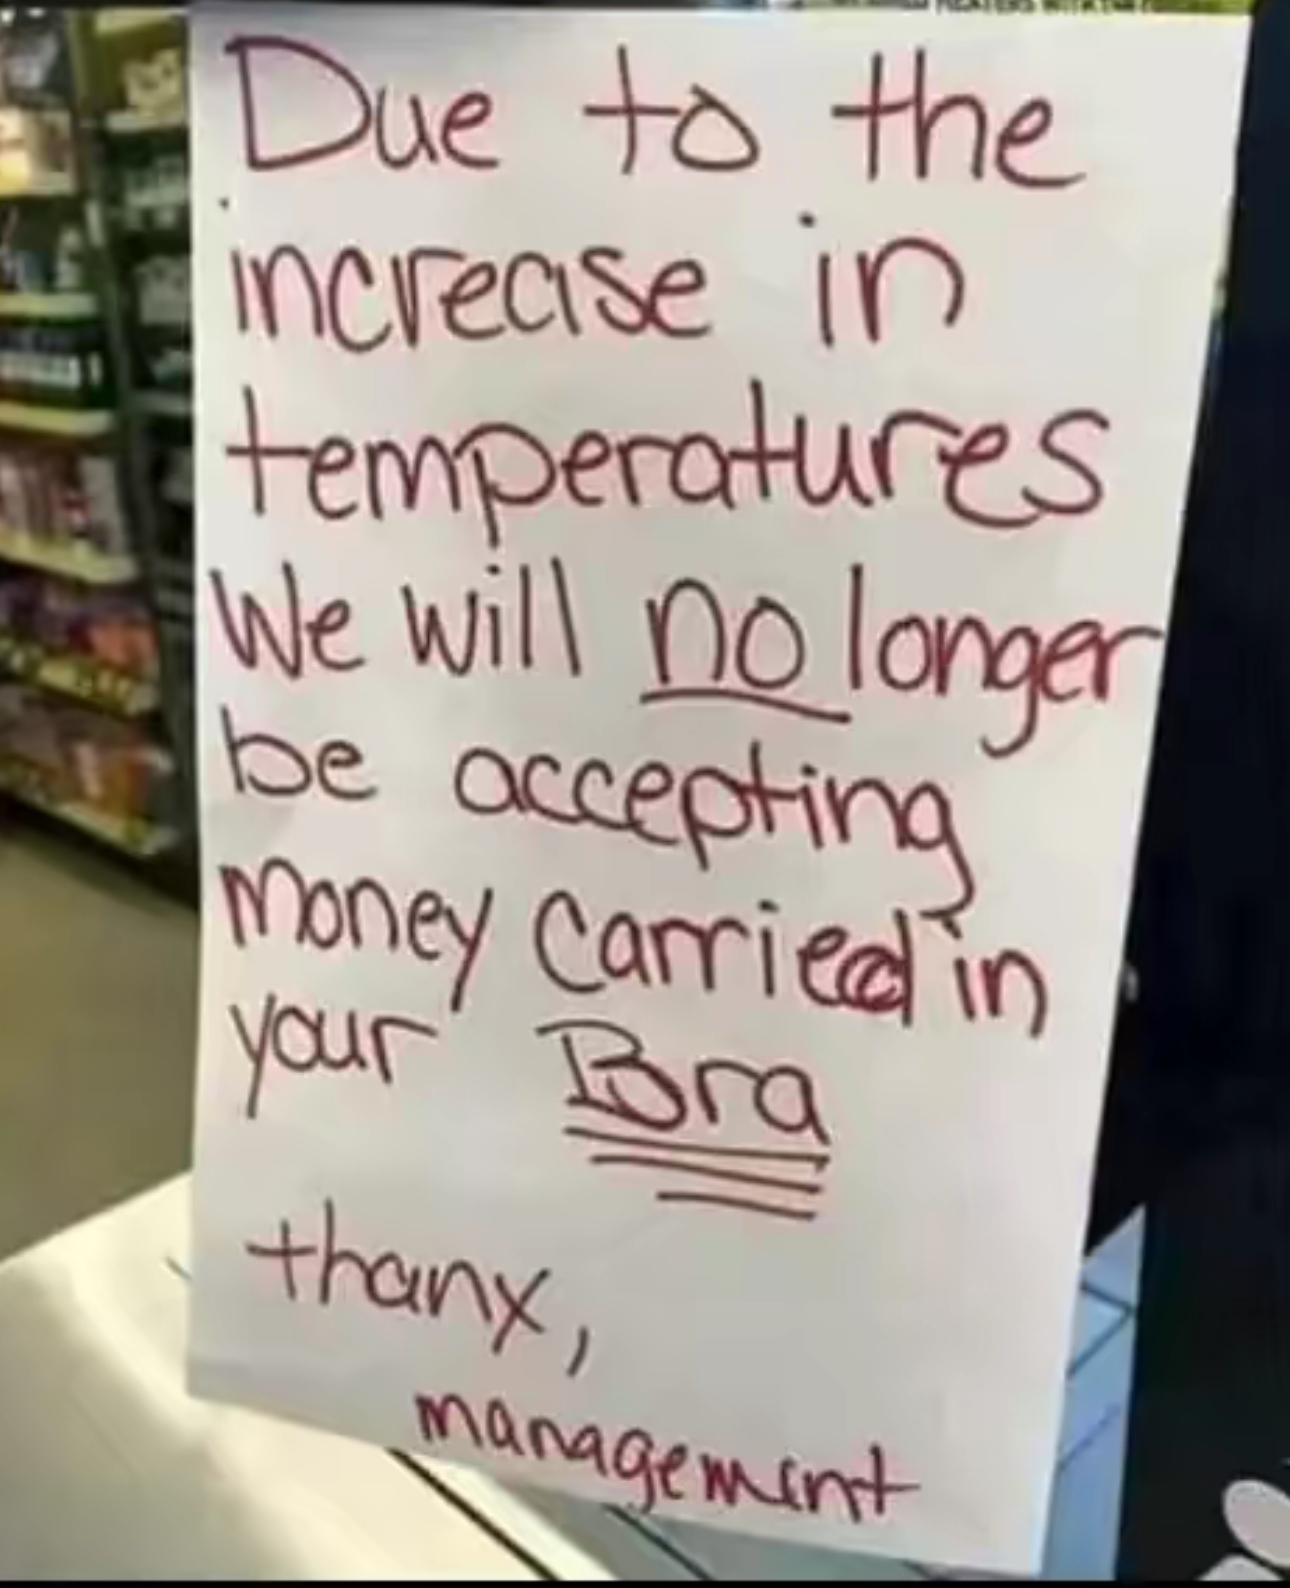 Due to the
increase in
temperatures
We will no longer
be accepting
money carried in
your Bra
thanx,
management